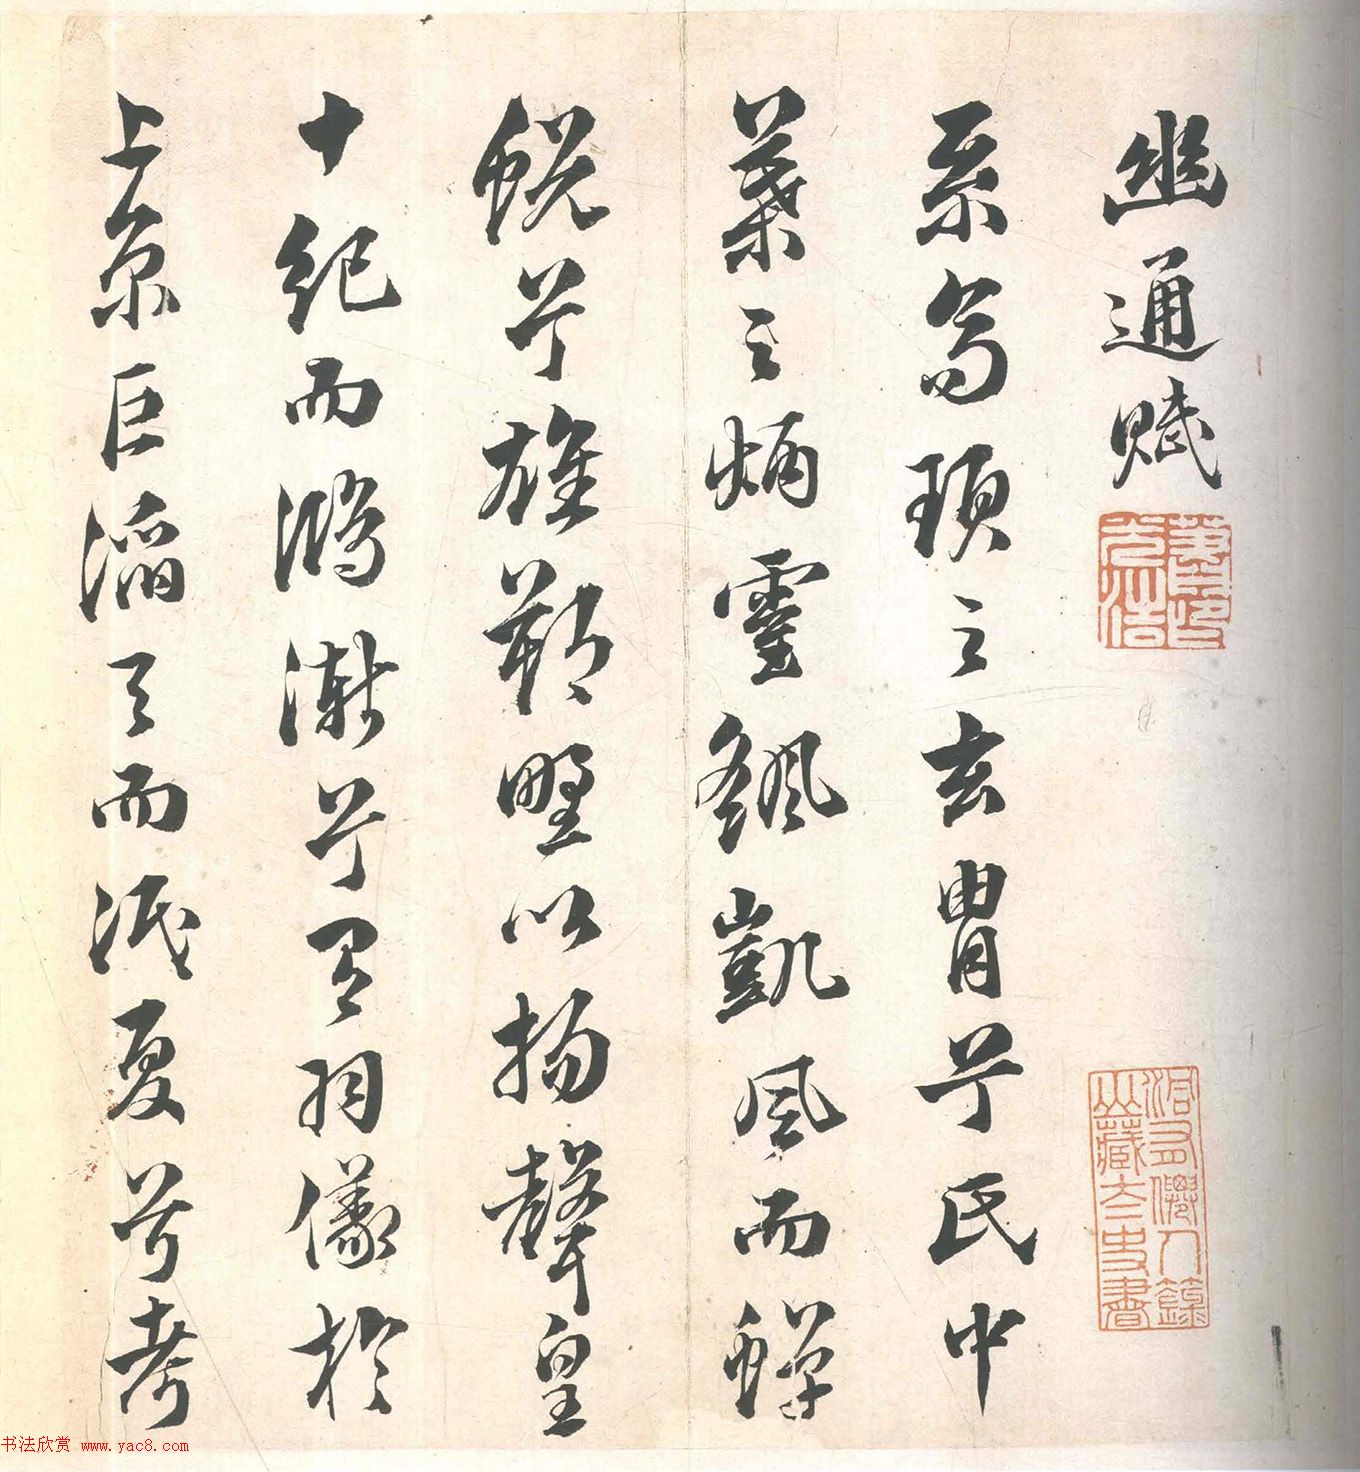 幽通賦
系高頊之玄胄兮氏中
葉之炳靈飖凱風而蟬
蛻兮雄朔野以揚聲皇
十紀而鴻漸兮有羽儀於
上京巨滔天而泯夏兮考
洞有僊人籙
山藏太史書
书法欣赏 www.yac8.com